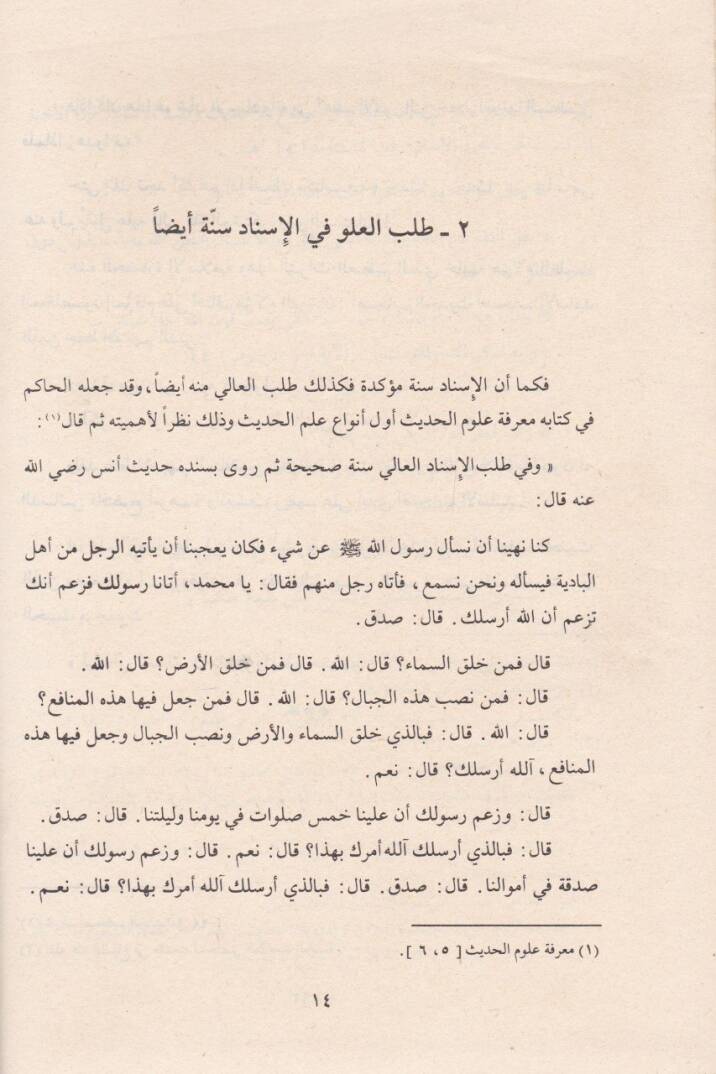 ٢ ـ طلب العلو في الإسناد سنّة أيضاً
فكما أن الإسناد سنة مؤكدة فكذلك طلب العالي منه أيضاً، وقد جعله الحاكم
في كتابه معرفة علوم الحديث أول أنواع علم الحديث وذلك نظراً لأهميته ثم قال(١):
« وفي طلب الإسناد العالي سنة صحيحة ثم روى بسنده حديث أنس رضي الله
عنه قال:
كنا نهينا أن نسأل رسول الله ﷺ عن شيء فكان يعجبنا أن يأتيه الرجل من أهل
البادية فيسأله ونحن نسمع، فأتاه رجل منهم فقال: يا محمد، أتانا رسولك فزعم أنك
تزعم أن الله أرسلك. قال: صدق.
قال فمن خلق السماء؟ قال: الله. قال فمن خلق الأرض؟ قال: الله.
قال: فمن نصب هذه الجبال؟ قال: الله. قال فمن جعل فيها هذه المنافع؟
قال: الله. قال: فبالذي خلق السماء والأرض ونصب الجبال وجعل فيها هذه
المنافع، آلله أرسلك؟ قال: نعم.
قال: وزعم رسولك أن علينا خمس صلوات في يومنا وليلتنا. قال: صدق.
قال: فبالذي أرسلك آلله أمرك بهذا؟ قال: نعم. قال: وزعم رسولك أن علينا
صدقة في أموالنا. قال: صدق. قال: فبالذي أرسلك آلله أمرك بهذا؟ قال: نعـم.
(١) معرفة علوم الحديث [ ٥، ٦ ].
١٤